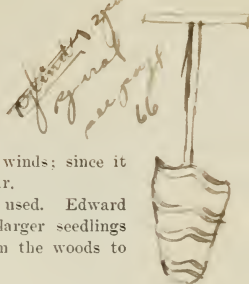 see page
66
winds; since it
r.
used. Edward
larger seedlings
m the woods to